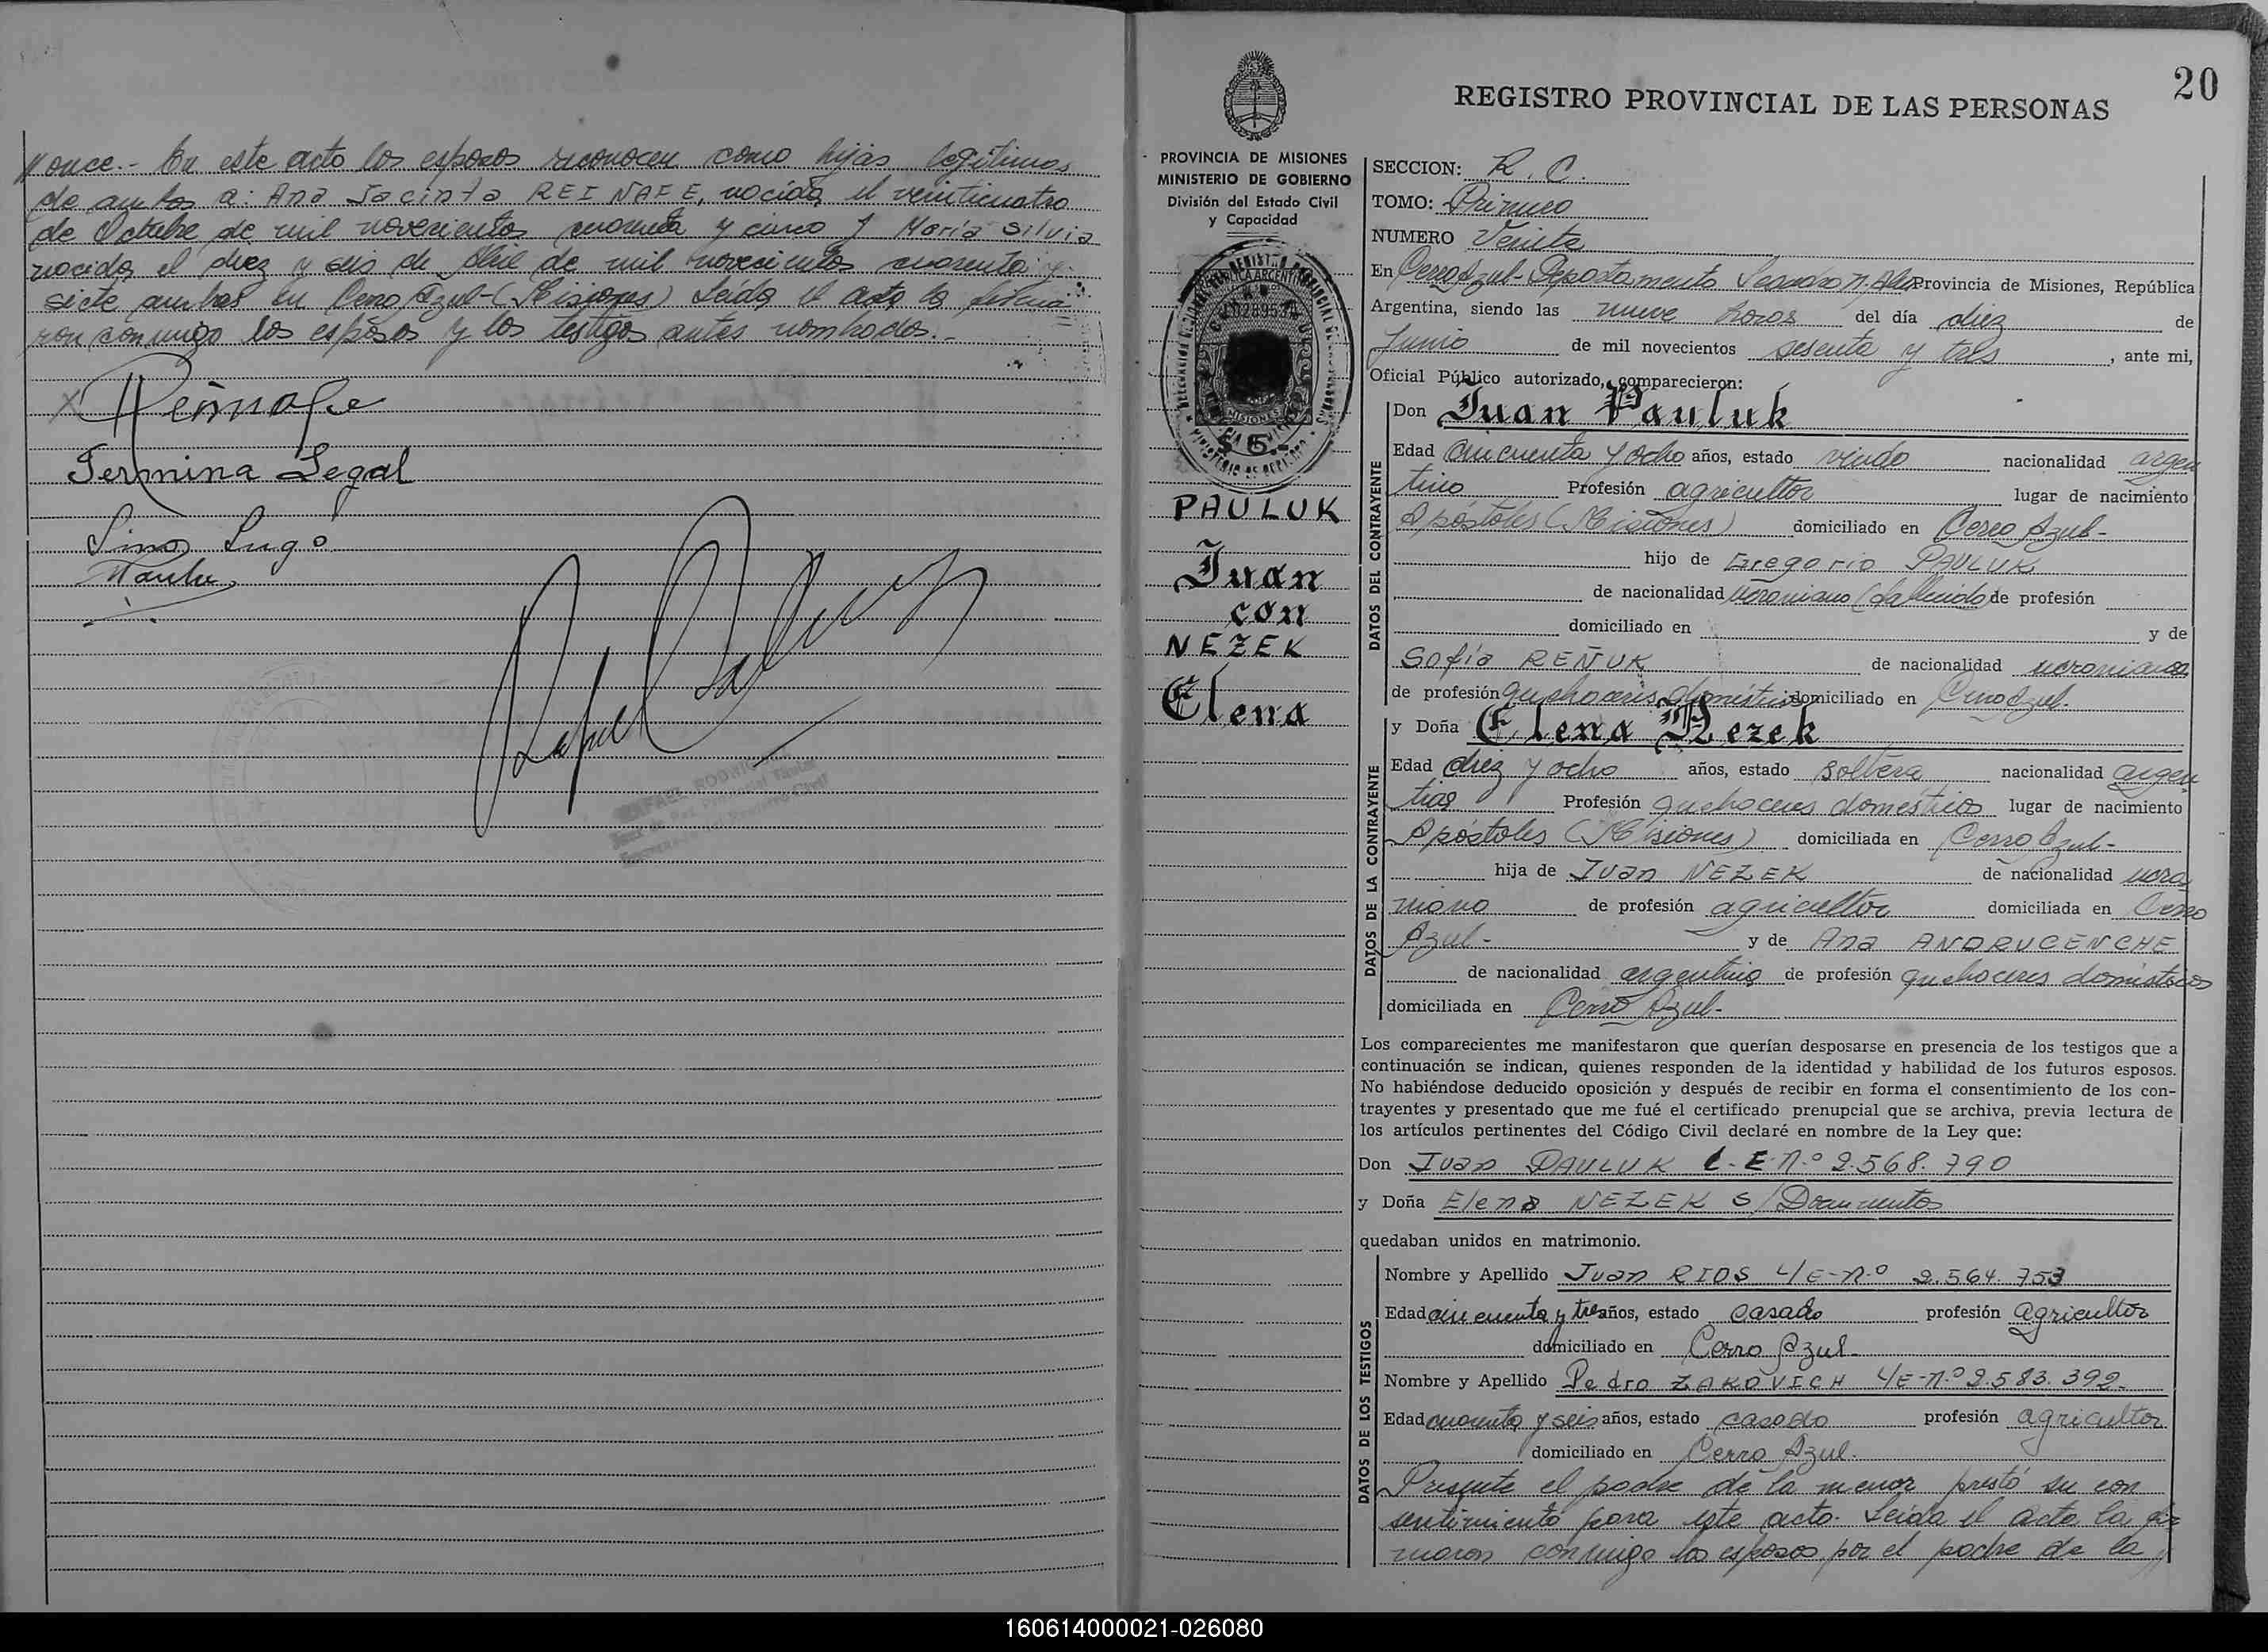 //once.- En este acto los esposos reconocen como hijas legítimas
de ambos a: Ana Jacinta REINAFE, nacida el veinticuatro
de Octubre de mil novecientos cuarenta y cinco y María Silvia
nacida el diez y seis de Abril de mil novecientos cuarenta y
siete ambas en Cerro Azul-(Misiones) Leída el acta la firma
ron conmigo los esposos y los testigos antes nombrados.-
Reinafe
Termina Legal
Lugo
RAFAEL
20
REGISTRO PROVINCIAL DE LAS PERSONAS
PROVINCIA DE MISIONES
MINISTERIO DE GOBIERNO
División del Estado Civil
y Capacidad
REPUBLICA ARGENTINA
MISIONES
$ 5
PAULUK
Juan
con
NEZEK
Elena
SECCION: R. C.
TOMO: Primero
NUMERO Veinte
En Cerro Azul-Departamento Leandro N. Alem Provincia de Misiones, República
Argentina, siendo las nueve horas del día diez de
Junio de mil novecientos sesenta y tres, ante mi,
Oficial Público autorizado, comparecieron:
DATOS DEL CONTRAYENTE
Don Juan Pauluk
Edad cincuenta y ocho años, estado viudo nacionalidad argen
tino Profesión agricultor lugar de nacimiento
Apóstoles (Misiones) domiciliado en Cerro Azul-
hijo de Gregorio PAULUK
de nacionalidad ucraniano (fallecido) de profesión
domiciliado en y de
Sofía REÑUK de nacionalidad ucraniana
de profesión quehaceres domésticos domiciliado en Cerro Azul.
DATOS DE LA CONTRAYENTE
y Doña Elena Nezek
Edad diez y ocho años, estado soltera nacionalidad argen
tina Profesión quehaceres domésticos lugar de nacimiento
Apóstoles (Misiones) domiciliada en Cerro Azul-
hija de Juan NEZEK de nacionalidad ucra
niano de profesión agricultor domiciliada en Cerro
Azul- y de Ana ANDRUCENCHE
de nacionalidad argentina de profesión quehaceres domésticos
domiciliada en Cerro Azul-
Los comparecientes me manifestaron que querían desposarse en presencia de los testigos que a
continuación se indican, quienes responden de la identidad y habilidad de los futuros esposos.
No habiéndose deducido oposición y después de recibir en forma el consentimiento de los con-
trayentes y presentado que me fué el certificado prenupcial que se archiva, previa lectura de
los artículos pertinentes del Código Civil declaré en nombre de la Ley que:
Don Juan PAULUK L-E-N.º 2.568.790
y Doña Elena NEZEK S/Documentos
quedaban unidos en matrimonio.
DATOS DE LOS TESTIGOS
Nombre y Apellido Juan RIOS L/E-N.º 2.564.753
Edad cincuenta y tres años, estado casado profesión agricultor
domiciliado en Cerro Azul-
Nombre y Apellido Pedro ZAKOVICH L/E-N.º 2.583.392-
Edad cuarenta y seis años, estado casado profesión agricultor
domiciliado en Cerro Azul.
Presente el padre de la menor prestó su con
sentimiento para este acto. Leída el acta la fir
maron conmigo los esposos por el padre de la //
160614000021-026080